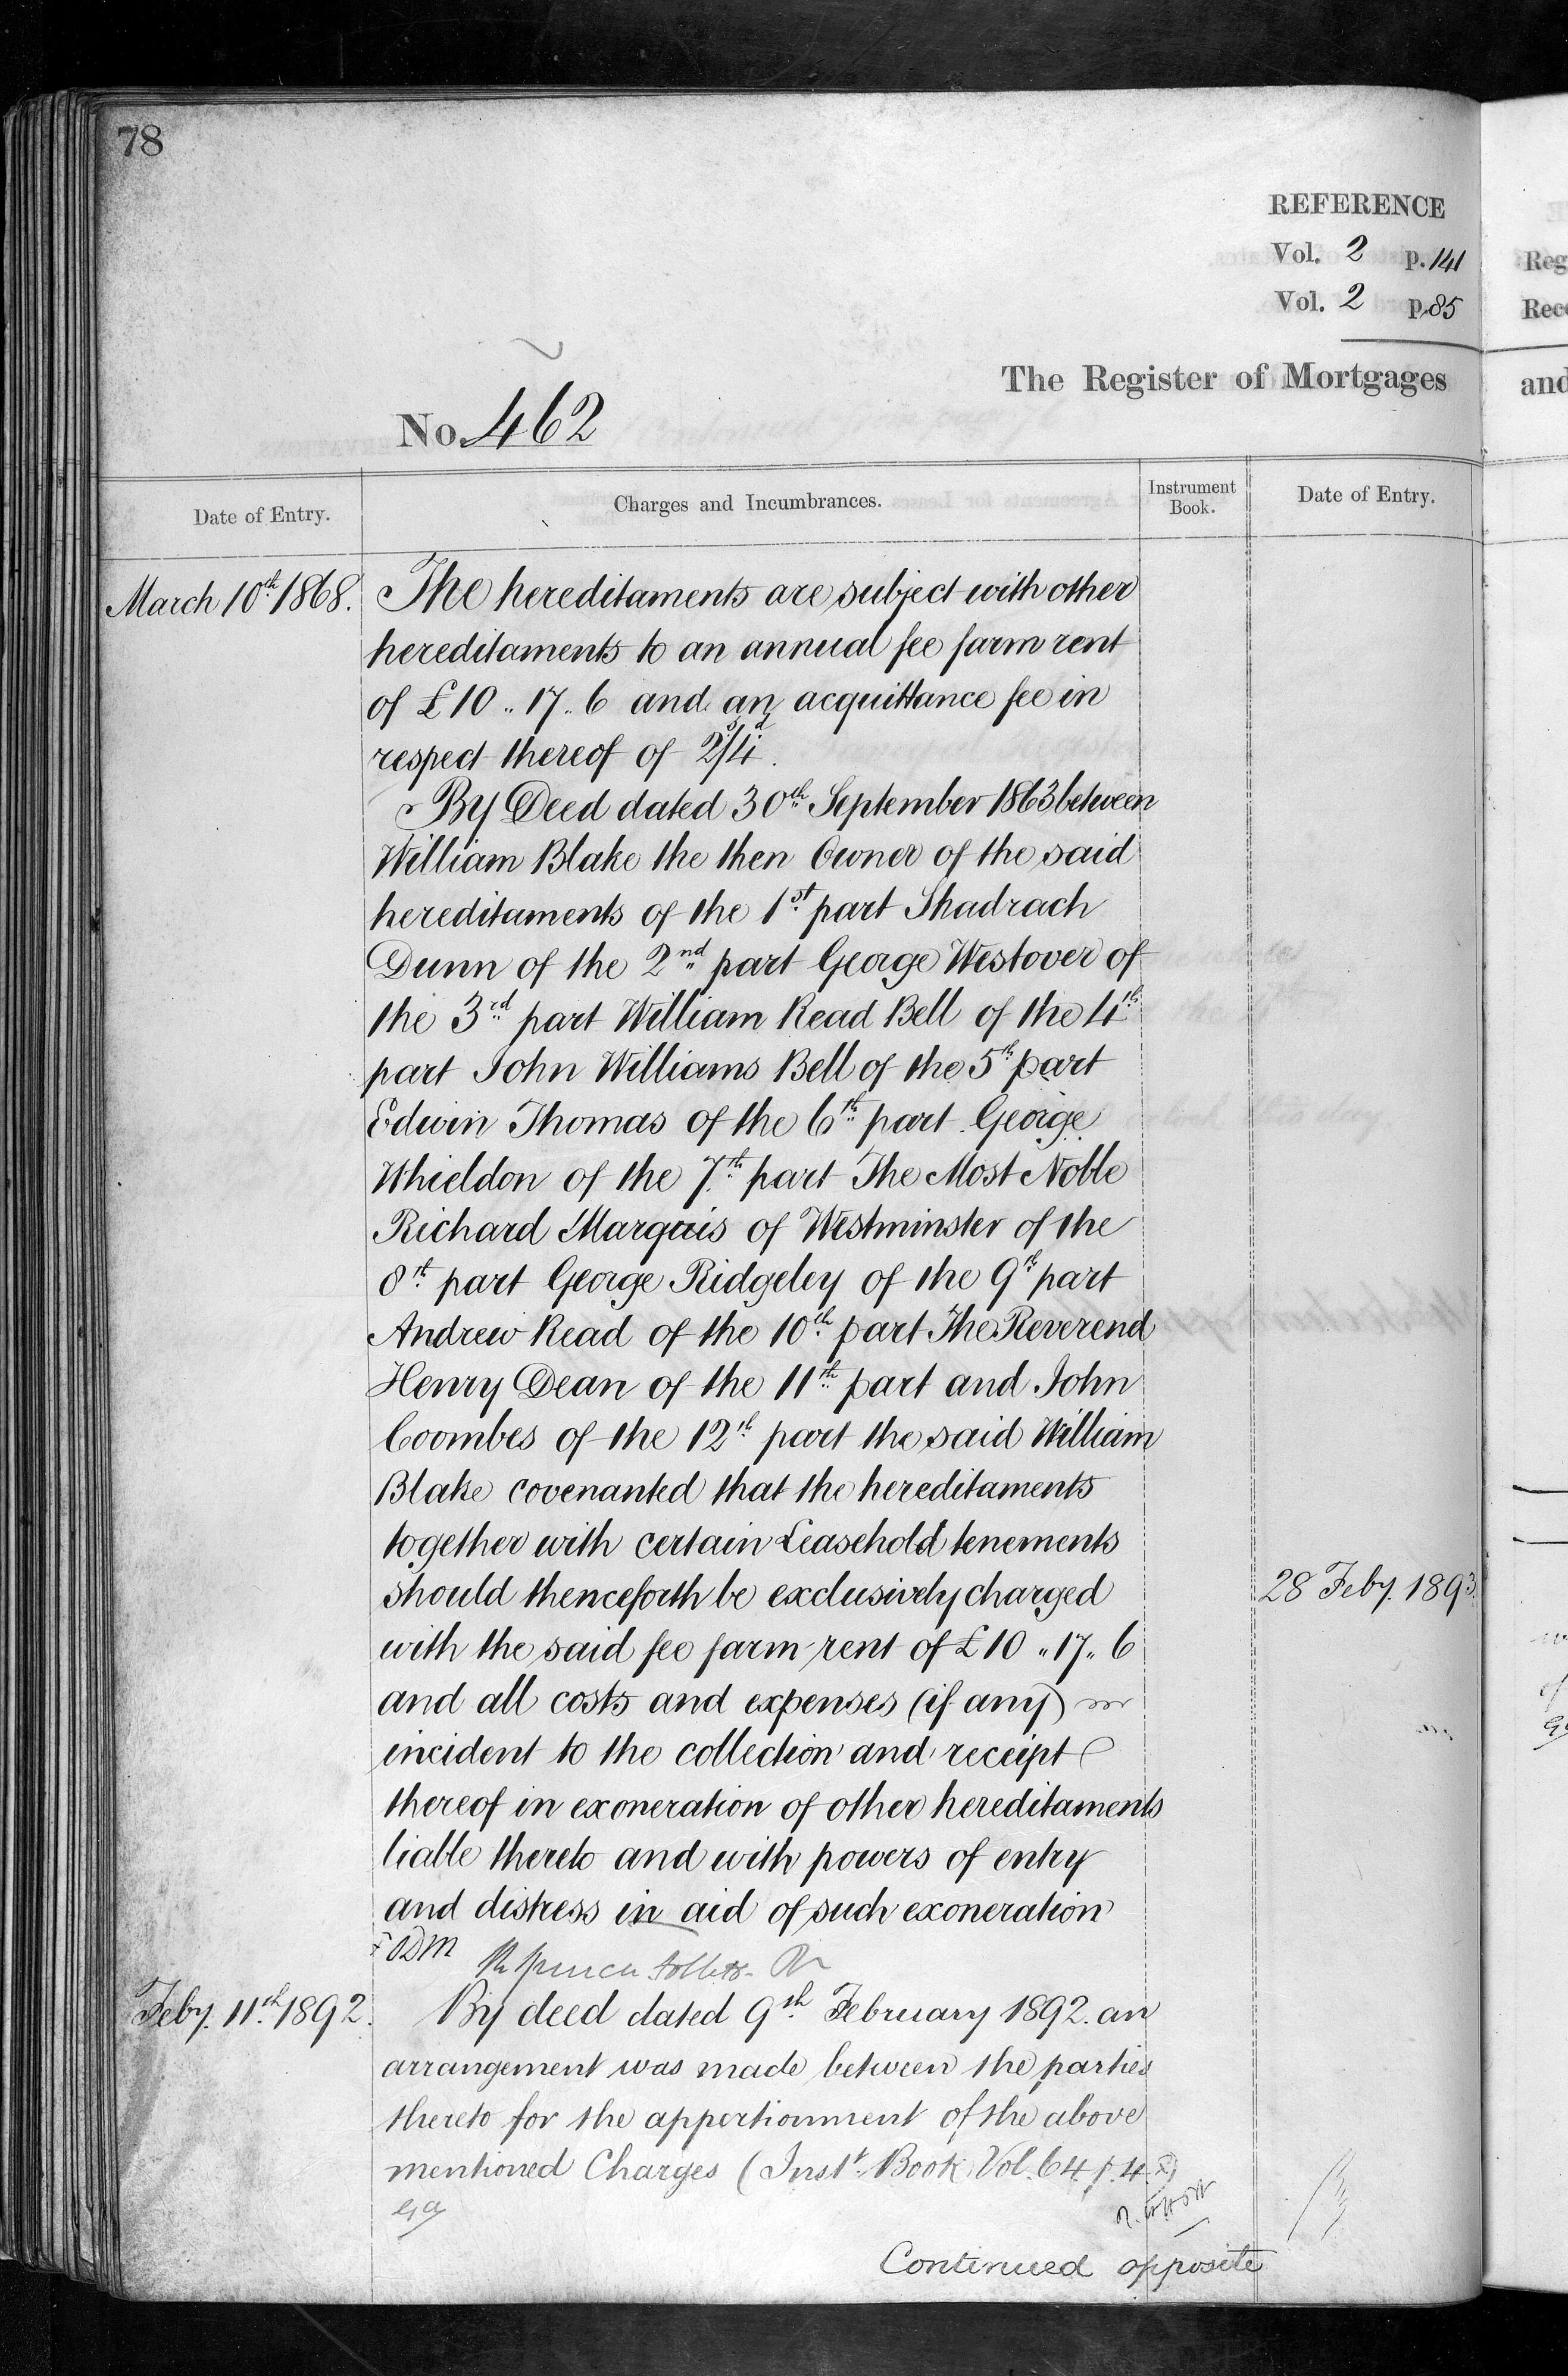 78
REFERENCE
Vol. 2 p. 141
Vol. 2 p. 85
The Register of Mortgages
No. 462
Date of Entry.
Charges and Incumbrances.
Instrument Book.
Date of Entry.
March 10th 1868.
The hereditaments are subject with other
hereditaments to an annual fee farm rent
of £10 .. 17 .. 6 and an acquittance fee in
respect thereof of 2s/4d.
By Deed dated 30th September 1863 between
William Blake the then Owner of the said
hereditaments of the 1st part Shadrach
Dunn of the 2nd part George Westover of
the 3rd part William Read Bell of the 4th
part John Williams Bell of the 5th part
Edwin Thomas of the 6th part George
Whieldon of the 7th part The Most Noble
Richard Marquis of Westminster of the
8th part George Ridgeley of the 9th part
Andrew Read of the 10th part The Reverend
Henry Dean of the 11th part and John
Coombes of the 12th part the said William
Blake covenanted that the hereditaments
together with certain Leasehold tenements
should thenceforth be exclusively charged
with the said fee farm rent of £10 .. 17 .. 6
and all costs and expenses (if any)
incident to the collection and receipt
thereof in exoneration of other hereditaments
liable thereto and with powers of entry
and distress in aid of such exoneration
28 Feby. 1893.
Feby. 11th 1892.
By deed dated 9th February 1892. an
arrangement was made between the parties
thereto for the apportionment of the above
mentioned Charges (Instt. Book Vol. 64 p. 42)
Continued opposite
Reg
Rec
and